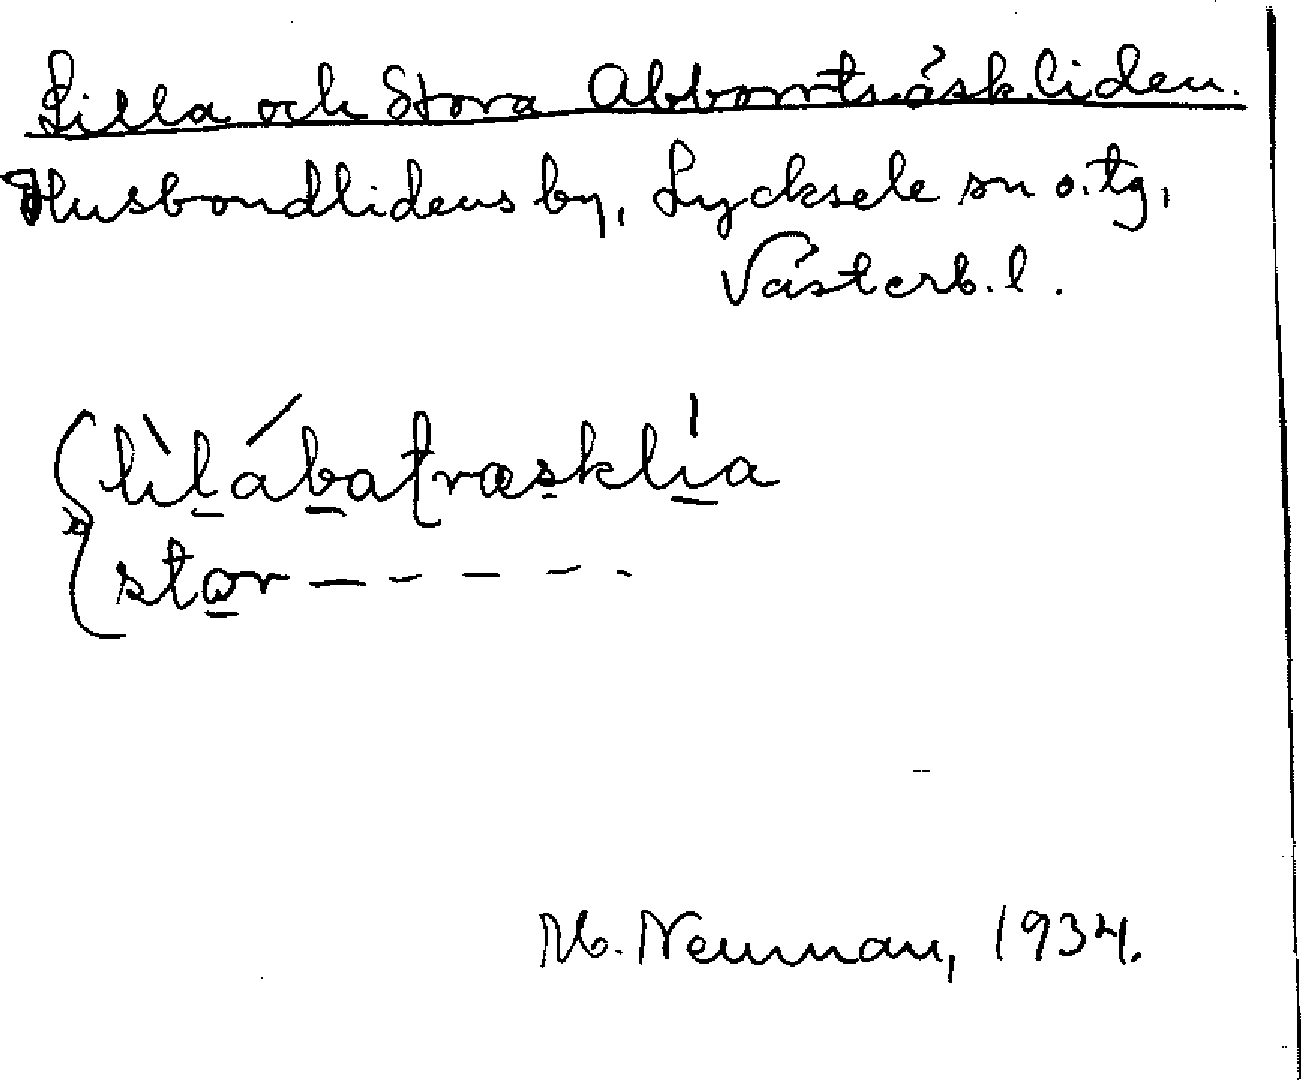 Lilla och Stora Abborrträskliden.
Husbondlidens by, Lycksele sn o. tg,
Västerb. l.
lìl̲áb̲aƫræsklı̲́a
sta̲r – – – – –
M. Neuman, 1934.